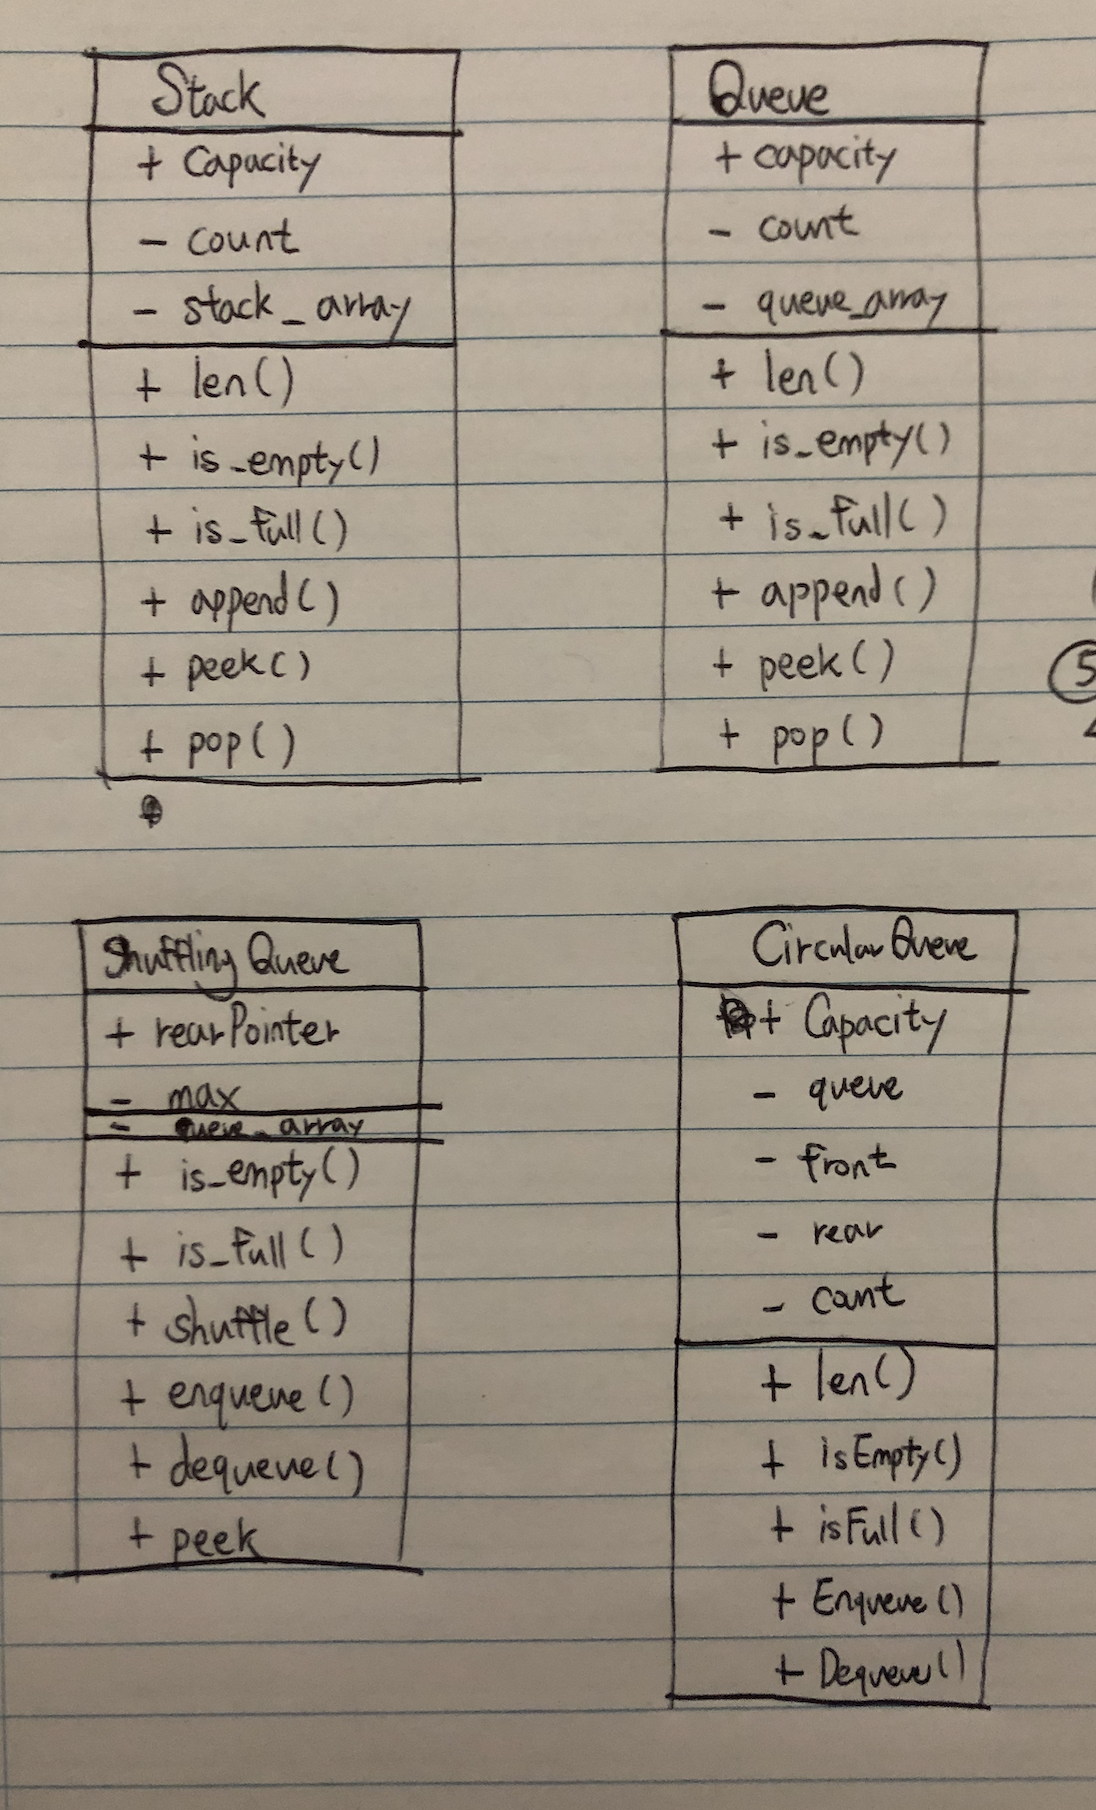 Stack
+ Capacity
- count
- stack_array
+ len()
+ is_empty()
+ is_full()
+ append()
+ peek()
+ pop()
Queue
+ capacity
- count
- queue_array
+ len()
+ is_empty()
+ is_full()
+ append()
+ peek()
+ pop()
5
Shuffling Queue
+ rearPointer
- max
- queue_array
+ is_empty()
+ is_full()
+ shuffle()
+ enqueue()
+ dequeue()
+ peek
Circular Queue
+ Capacity
- queue
- front
- rear
- count
+ len()
+ isEmpty()
+ isFull()
+ Enqueue()
+ Dequeue()